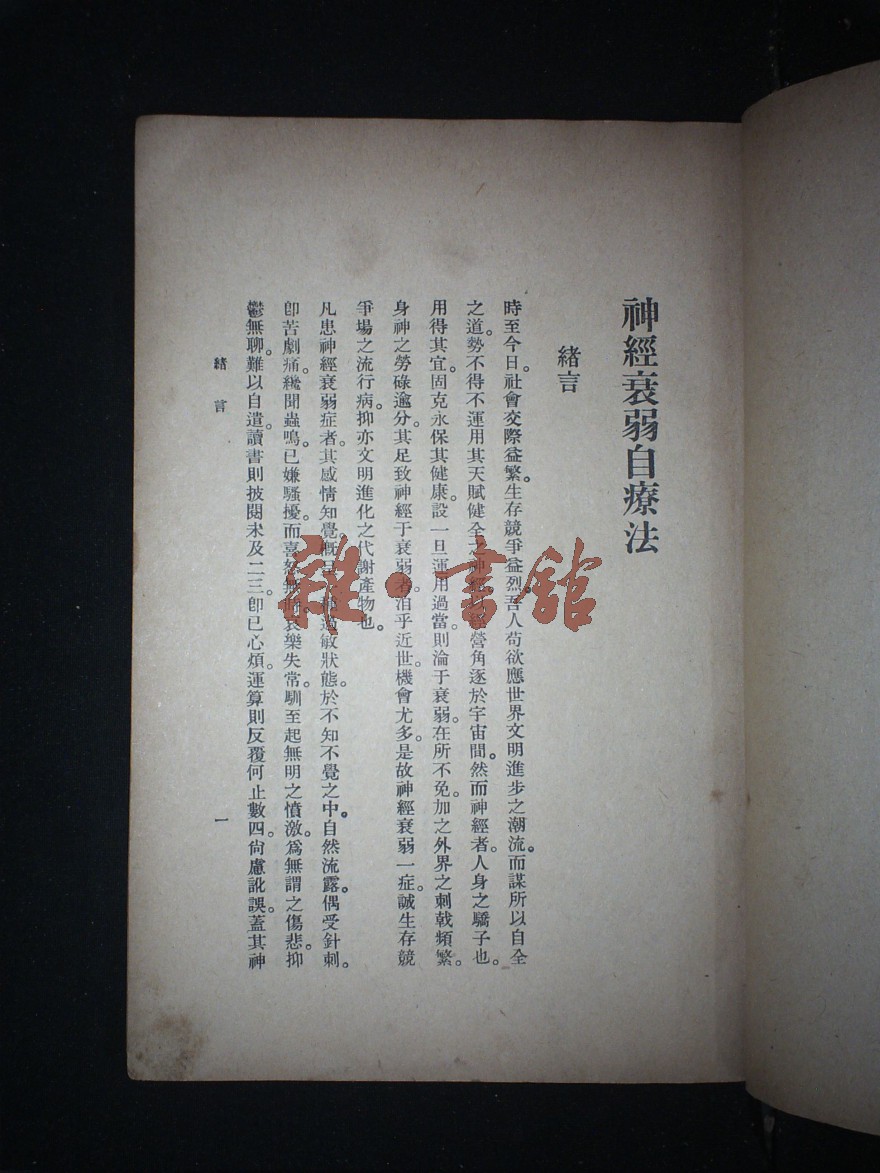 神經衰弱自療法
緒言
時至今日。社會交際益繁。生存競爭益烈。吾人苟欲應世界文明進步之潮流。而謀所以自全
之道。勢不得不運用其天賦健全之神經。經營角逐於宇宙間。然而神經者。人身之驕子也。
用得其宜。固克永保其健康。設一旦運用過當。則淪于衰弱。在所不免。加之外界之刺戟頻繁。
身神之勞碌逾分。其足致神經于衰弱者。洎乎近世。機會尤多。是故神經衰弱一症。誠生存競
爭場之流行病。抑亦文明進化之代謝產物也。
凡患神經衰弱症者。其感情知覺。概過敏狀態。於不知不覺之中。自然流露。偶受針刺。
卽苦劇痛。纔聞蟲鳴。已嫌騷擾。而喜怒無時。哀樂失常。馴至起無明之憤激。爲無謂之傷悲。抑
鬱無聊。難以自遣。讀書則披閱未及二三。卽已心煩。運算則反覆何止數四。尙慮訛誤。蓋其神
緒言
一
雜·書館